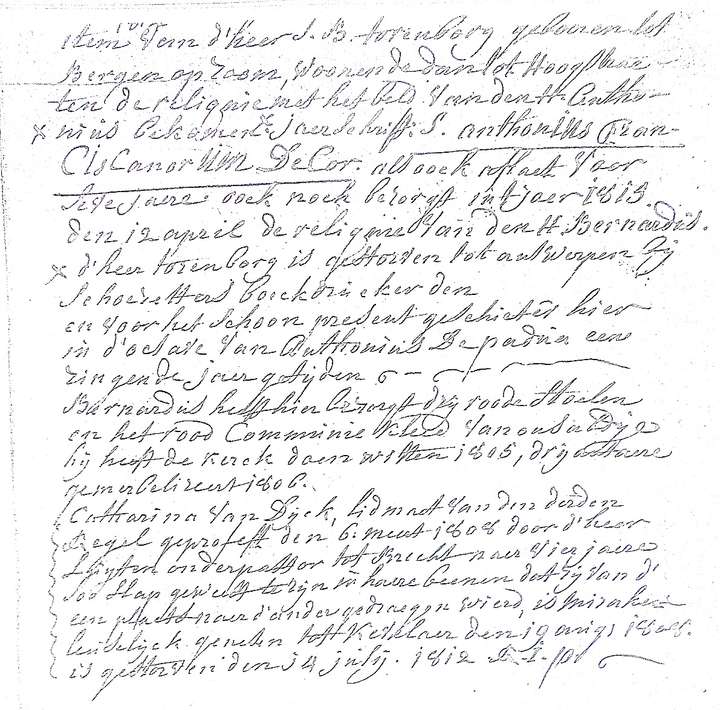 item Van d'heer J. B. torenborg gebooren tot
Bergen op Zoom, Woonende dan tot Hoogstrae
ten de religuie met het beld Van den H. Antho-
x nius bekomen. jaerschrift: S. anthonius Fran-
CisCanorUM DeCor. als ook aflaet Voor
seve jaere oock noch bezorgt int jaer 1813.
den 12 april de religuie Van den H. Bernardus.
x d'heer torenborg is gestorven tot antwerpen by
Schoesetters boeckdrucker den
en Voor het Schoon present geschiet er hier
in d'octave Van Anthonius De padua eene
zingende jaer getijden
Barnardus heeft hier bezorgt dry roode Stoelen
en het rood Communie kleed Van onse
hy heeft de kerck doen witten 1805, dry autaere
gemerbelizeert 1806.
Catharina Van Dyck, lidmaet Van den derden
Regel geprofest den 6. meert 1808 door d'heer
Luyten onderpastor tot Brecht naer Vier jaere
soo slap geweest te zyn in haere beenen dat zy Van d'
een plaets naer d'ander gedraegen wierd, is miraku-
leuselyck genesen tot Kevelaer den 19 augs 1808.
is gestorven den 14 july. 1812 R. I. p.